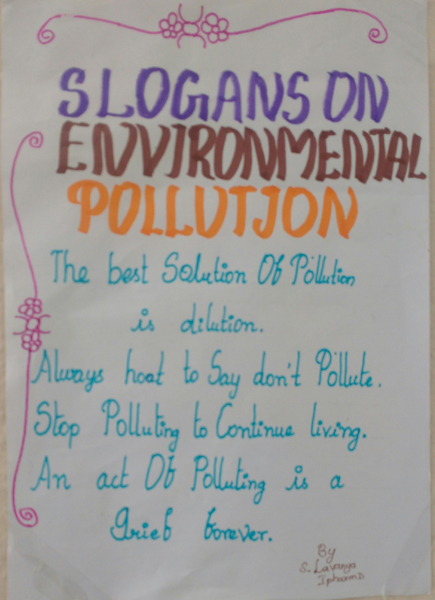 SLOGANS ON
ENVIRONMENTAL
POLLUTION
The best Solution Of Pollution
is dilution.
Always hoot to Say don't Pollute.
Stop Polluting to Continue living.
An act Of Polluting is a
grief forever.
By
S. Lavanya
I pharm D